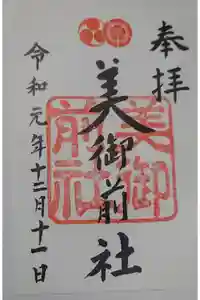 奉拝
美御前社
美御
前社
令和元年十二月十一日